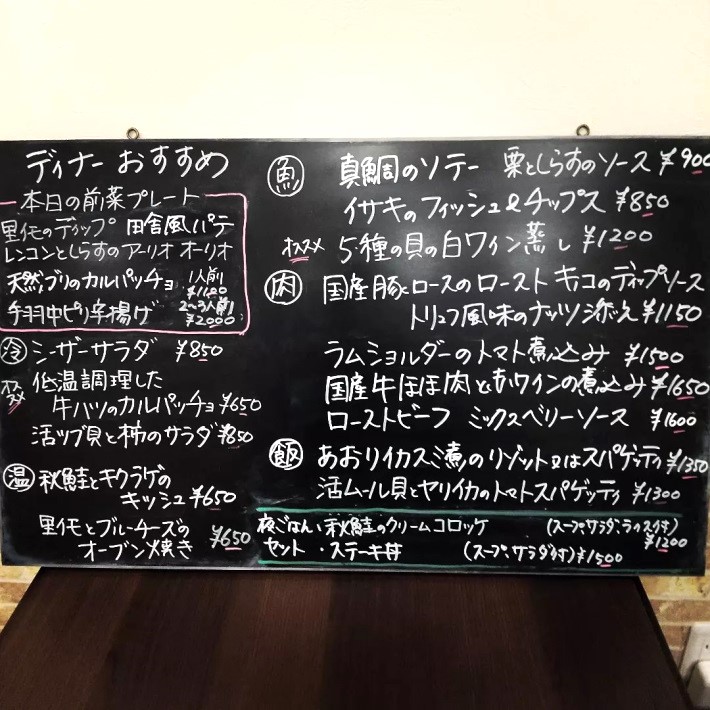 ディナー おすすめ
本日の前菜プレート
里芋のディップ 田舎風パテ
レンコンとしらすのアーリオ オーリオ
天然ブリのカルパッチョ 1人前 ¥1100
手羽中ピリ辛揚げ 2~3人前 ¥2000
冷 シーザーサラダ ¥850
オススメ 低温調理した
牛ハツのカルパッチョ ¥650
活ツブ貝と柿のサラダ ¥850
温 秋鮭とキクラゲの
キッシュ ¥650
里イモとブルーチーズの
オーブン焼き ¥650
魚 真鯛のソテー 栗としらすのソース ¥900
イサキのフィッシュ&チップス ¥850
オススメ 5種の貝の白ワイン蒸し ¥1200
肉 国産豚ロースのロースト キコのディップソース
トリュフ風味のナッツ添え ¥1150
ラムショルダーのトマト煮込み ¥1500
国産牛ほほ肉と赤ワインの煮込み ¥1650
ローストビーフ ミックスベリーソース ¥1600
飯 あおりイカスミ煮のリゾット又はスパゲッティ ¥1350
活ムール貝とヤリイカのトマトスパゲッティ ¥1300
夜ごはん ・秋鮭のクリームコロッケ (スープ、サラダ、ライス付) ¥1200
セット ・ステーキ丼 (スープ、サラダ付) ¥1500